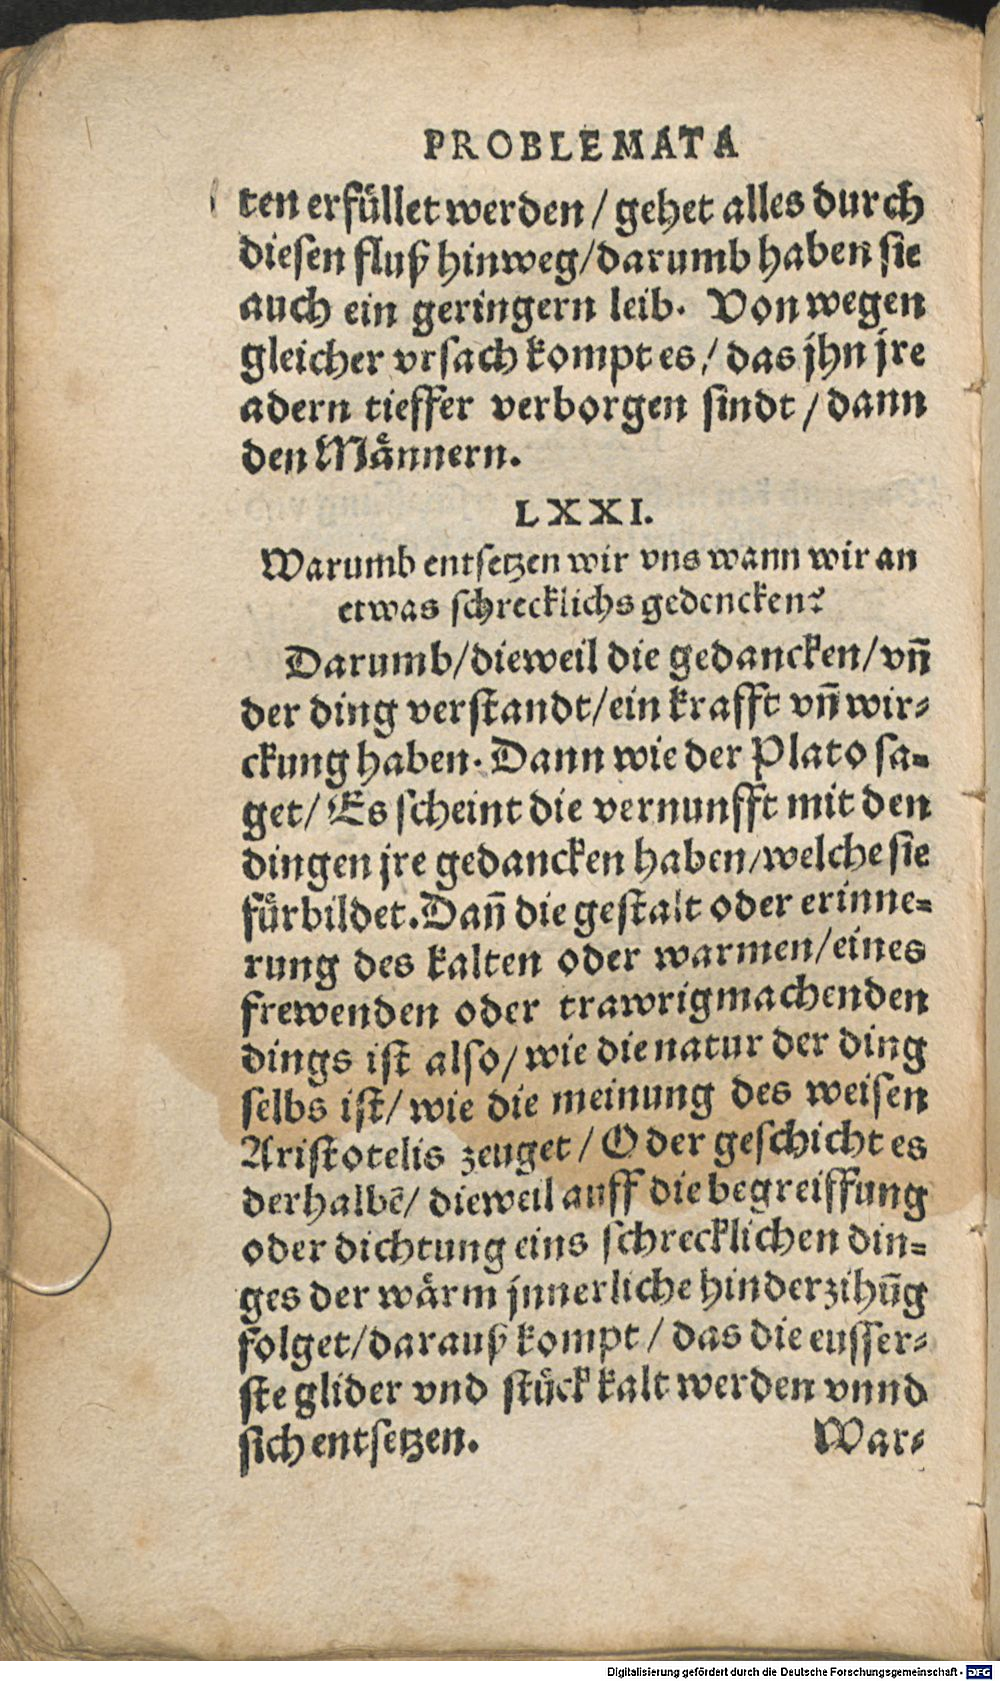 PROBLEMATA
ten erfuͤllet werden / gehet alles durch
diesen fluß hinweg / darumb haben sie
auch ein geringern leib. Von wegen
gleicher vrsach kompt es / das jhn jre
adern tieffer verborgen sindt / dann
den Maͤnnern.
LXXI.
Warumb entsetzen wir vns wann wir an
etwas schrecklichs gedencken?
Darumb / dieweil die gedancken / vñ
der ding verstandt / ein krafft vñ wir⸗
ckung haben. Dann wie der Plato sa⸗
get / Es scheint die vernunfft mit den
dingen jre gedancken haben / welche sie
fuͤrbildet. Dañ die gestalt oder erinne⸗
rung des kalten oder warmen / eines
frewenden oder trawrigmachenden
dings ist also / wie die natur der ding
selbs ist / wie die meinung des weisen
Aristotelis zeuget / Oder geschicht es
derhalbẽ / dieweil auff die begreiffung
oder dichtung eins schrecklichen din⸗
ges der waͤrm jnnerliche hinderzihũg
folget / darauß kompt / das die eusser⸗
ste glider vnd stuͤck kalt werden vnnd
sich entsetzen. War⸗
Digitalisierung gefördert durch die Deutsche Forschungsgemeinschaft - DFG